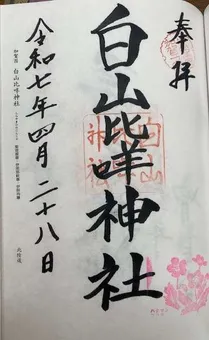 奉拝
白山比咩神社
令和七年四月二十八日
加賀國 白山比咩神社